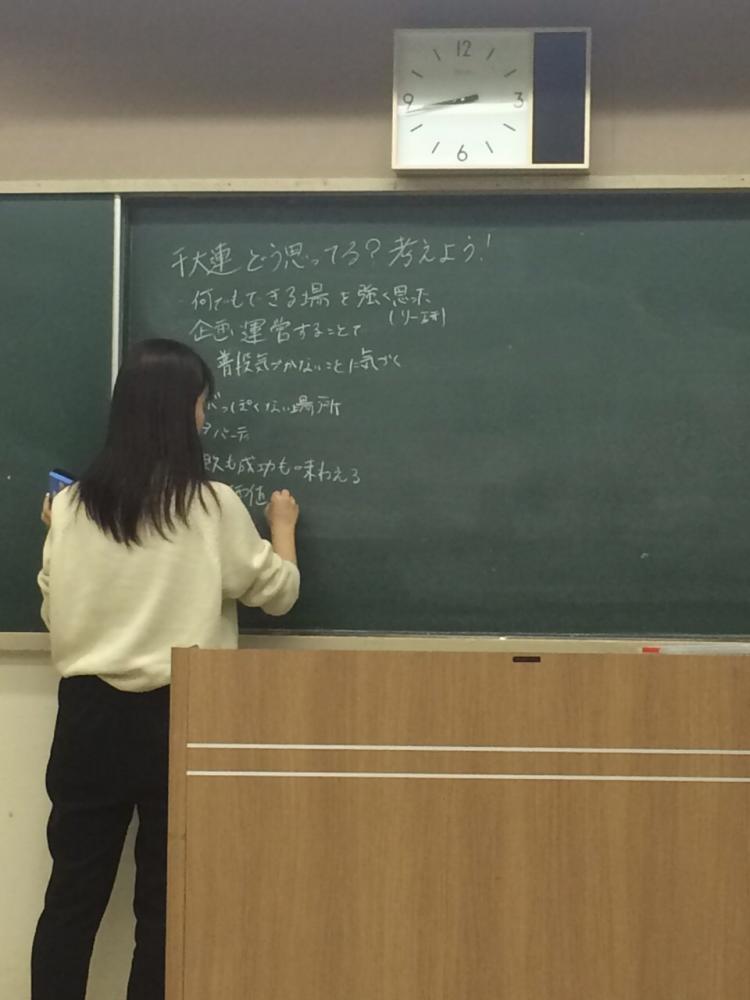 12
9 3
6
千大連 どう思ってる？考えよう！
何でもできる場を強く思った
企画運営することで
普段気づかないことに気づく
っぽくない場所
敗も成功も味わえる
価値